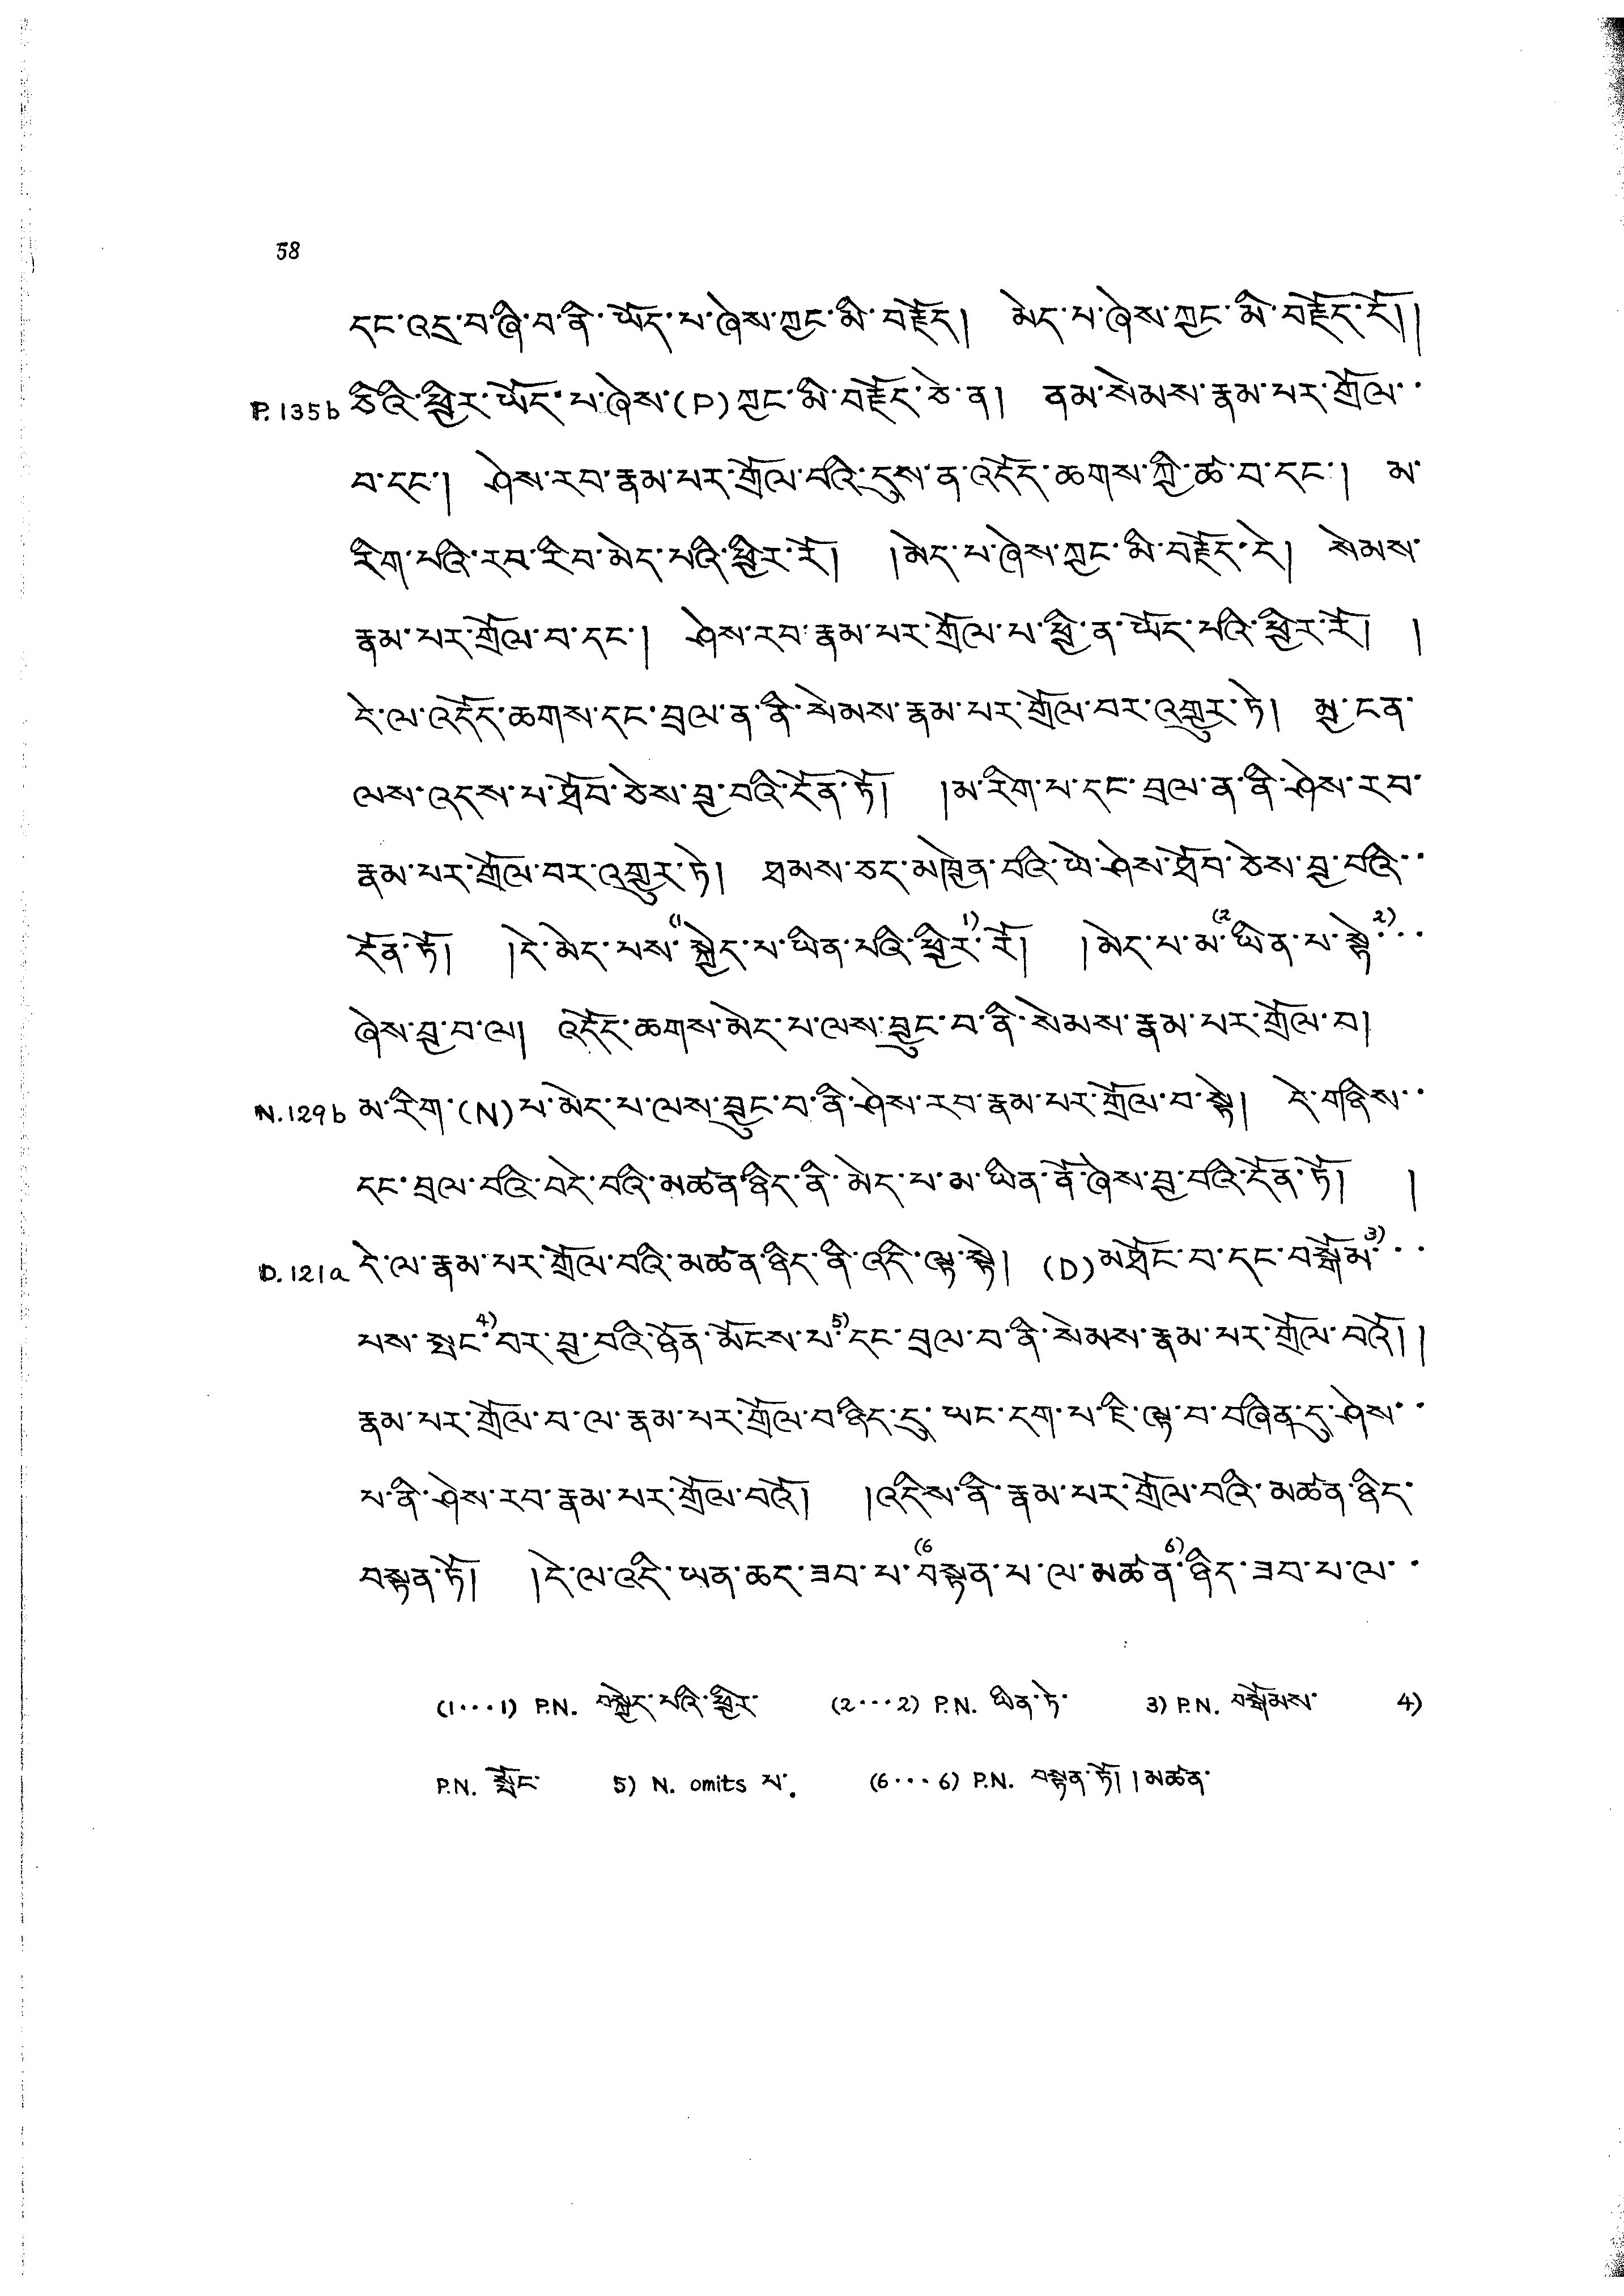 58
དང་འདྲ་བ་ཞི་བ་ནི་ཡོད་པ་ཞེས་ཀྱང་མི་བརྗོད། མེད་པ་ཞེས་ཀྱང་མི་བརྗོད་དོ། །
P. 135b ཅིའི་ཕྱིར་ཡོད་པ་ཞེས་(P)ཀྱང་མི་བརྗོད་ཅེ་ན། ནམ་སེམས་རྣམ་པར་གྲོལ་··
བ་དང་། ཤེས་རབ་རྣམ་པར་གྲོལ་བའི་དུས་ན་འདོད་ཆགས་ཀྱི་ཚ་བ་དང་། མ་
རིག་པའི་རབ་རིབ་མེད་པའི་ཕྱིར་རོ། །མེད་པ་ཞེས་ཀྱང་མི་བརྗོད་དེ། སེམས་
རྣམ་པར་གྲོལ་བ་དང་། ཤེས་རབ་རྣམ་པར་གྲོལ་པ་ཕྱི་ན་ཡོད་པའི་ཕྱིར་རོ། །
དེ་ལ་འདོད་ཆགས་དང་བྲལ་ན་ནི་སེམས་རྣམ་པར་གྲོལ་བར་འགྱུར་ཏེ། མྱ་ངན་
ལས་འདས་པ་ཐོབ་ཅེས་བྱ་བའི་དོན་ཏོ། །མ་རིག་པ་དང་བྲལ་ན་ནི་ཤེས་རབ་
རྣམ་པར་གྲོལ་བར་འགྱུར་ཏེ། ཐམས་ཅད་མཁྱེན་བའི་ཡེ་ཤེས་ཐོབ་ཅེས་བྱ་བའི་··
དོན་ཏོ། །དེ་མེད་པས་(1སྐྱེད་པ་ཡིན་པའི་ཕྱིར་1)རོ། །མེད་པ་མ་(2ཡིན་པ་སྟེ་2)··
ཞེས་བྱ་བ་ལ། འདོད་ཆགས་མེད་པ་ལས་བྱུང་བ་ནི་སེམས་རྣམ་པར་གྲོལ་བ།
N. 129b མ་རིག་(N)པ་མེད་པ་ལས་བྱུང་བ་ནི་ཤེས་རབ་རྣམ་པར་གྲོལ་བ་སྟེ། དེ་གཉིས་··
དང་བྲལ་བའི་བདེ་བའི་མཚན་ཉིད་ནི་མེད་པ་མ་ཡིན་ནོ་ཞེས་བྱ་བའི་དོན་ཏོ། །
D. 121a དེ་ལ་རྣམ་པར་གྲོལ་བའི་མཚན་ཉིད་ནི་འདི་ལྟ་སྟེ། (D)མཐོང་བ་དང་བསྒོམ་3)··
པས་སྤང་4)བར་བྱ་བའི་ཉོན་མོངས་པ་5)དང་བྲལ་བ་ནི་སེམས་རྣམ་པར་གྲོལ་བའོ། །
རྣམ་པར་གྲོལ་བ་ལ་རྣམ་པར་གྲོལ་བ་ཉིད་དུ་ཡང་དག་པ་ཇི་ལྟ་བ་བཞིན་དུ་ཤེས་··
པ་ནི་ཤེས་རབ་རྣམ་པར་གྲོལ་བའོ། །འདིས་ནི་རྣམ་པར་གྲོལ་བའི་མཚན་ཉིད་
བསྟན་ཏོ། །དེ་ལ་འདི་ཡན་ཆད་ཟབ་པ་(6བསྟན་པ་ལ་མཚན་6)ཉིད་ཟབ་པ་ལ་··
(1····1) P.N. བསྐྱེད་པའི་ཕྱིར་ (2···2) P.N. ཡིན་ཏེ་ 3) P.N. བསྒོམས་ 4)
P.N. སྤོང་ 5) N. omits པ་. (6···6) P.N. བསྟན་ཏོ། །མཚན་